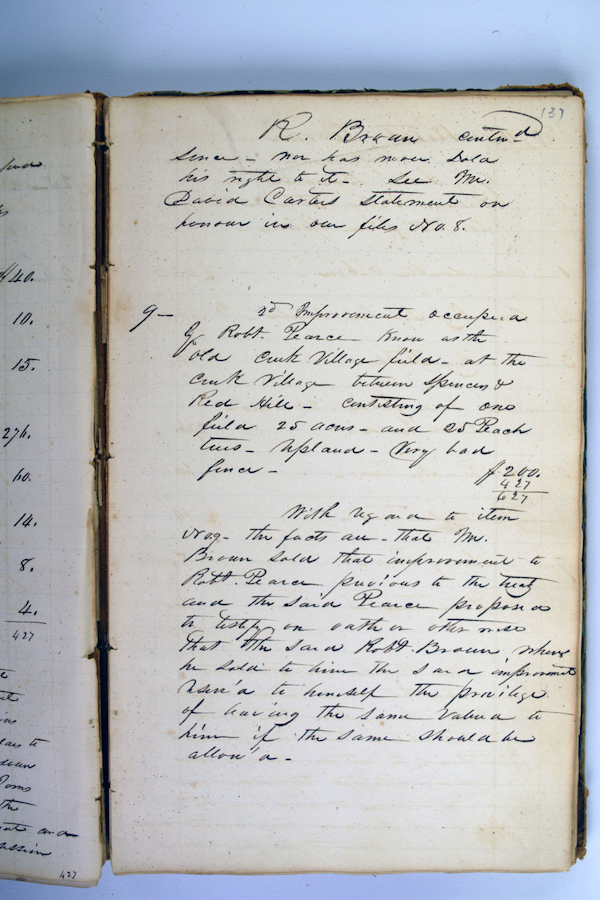 440.
10.
15.
276.
60.
14.
8.
4.
427
the
427
137
R. Brown contin-d
since - nor has never sold
his right to it - See Mr.
David Carters Statement on
honour in our files No. 8.
9 - 2d Improvement occupied
by Robt. Pearce know as the
old Creek Village field - at the
Creek Village between Spencers &
Red Hill - consisting of one
field 25 acres - and 25 Peach
trees - upland - Very bad
fence - $ 200.
427
627
With regard to item
No 9 - the facts are - that Mr.
Brown sold that improvement to
Robt. Pearce previous to the treaty
and the said Pearce proposes
to testify on oath or otherwise
that the said Robt. Brown, when
he sold to him the said improvement
reserv'd to himself the privilege
of having the same Valued to
him if the same should be
allow'd -